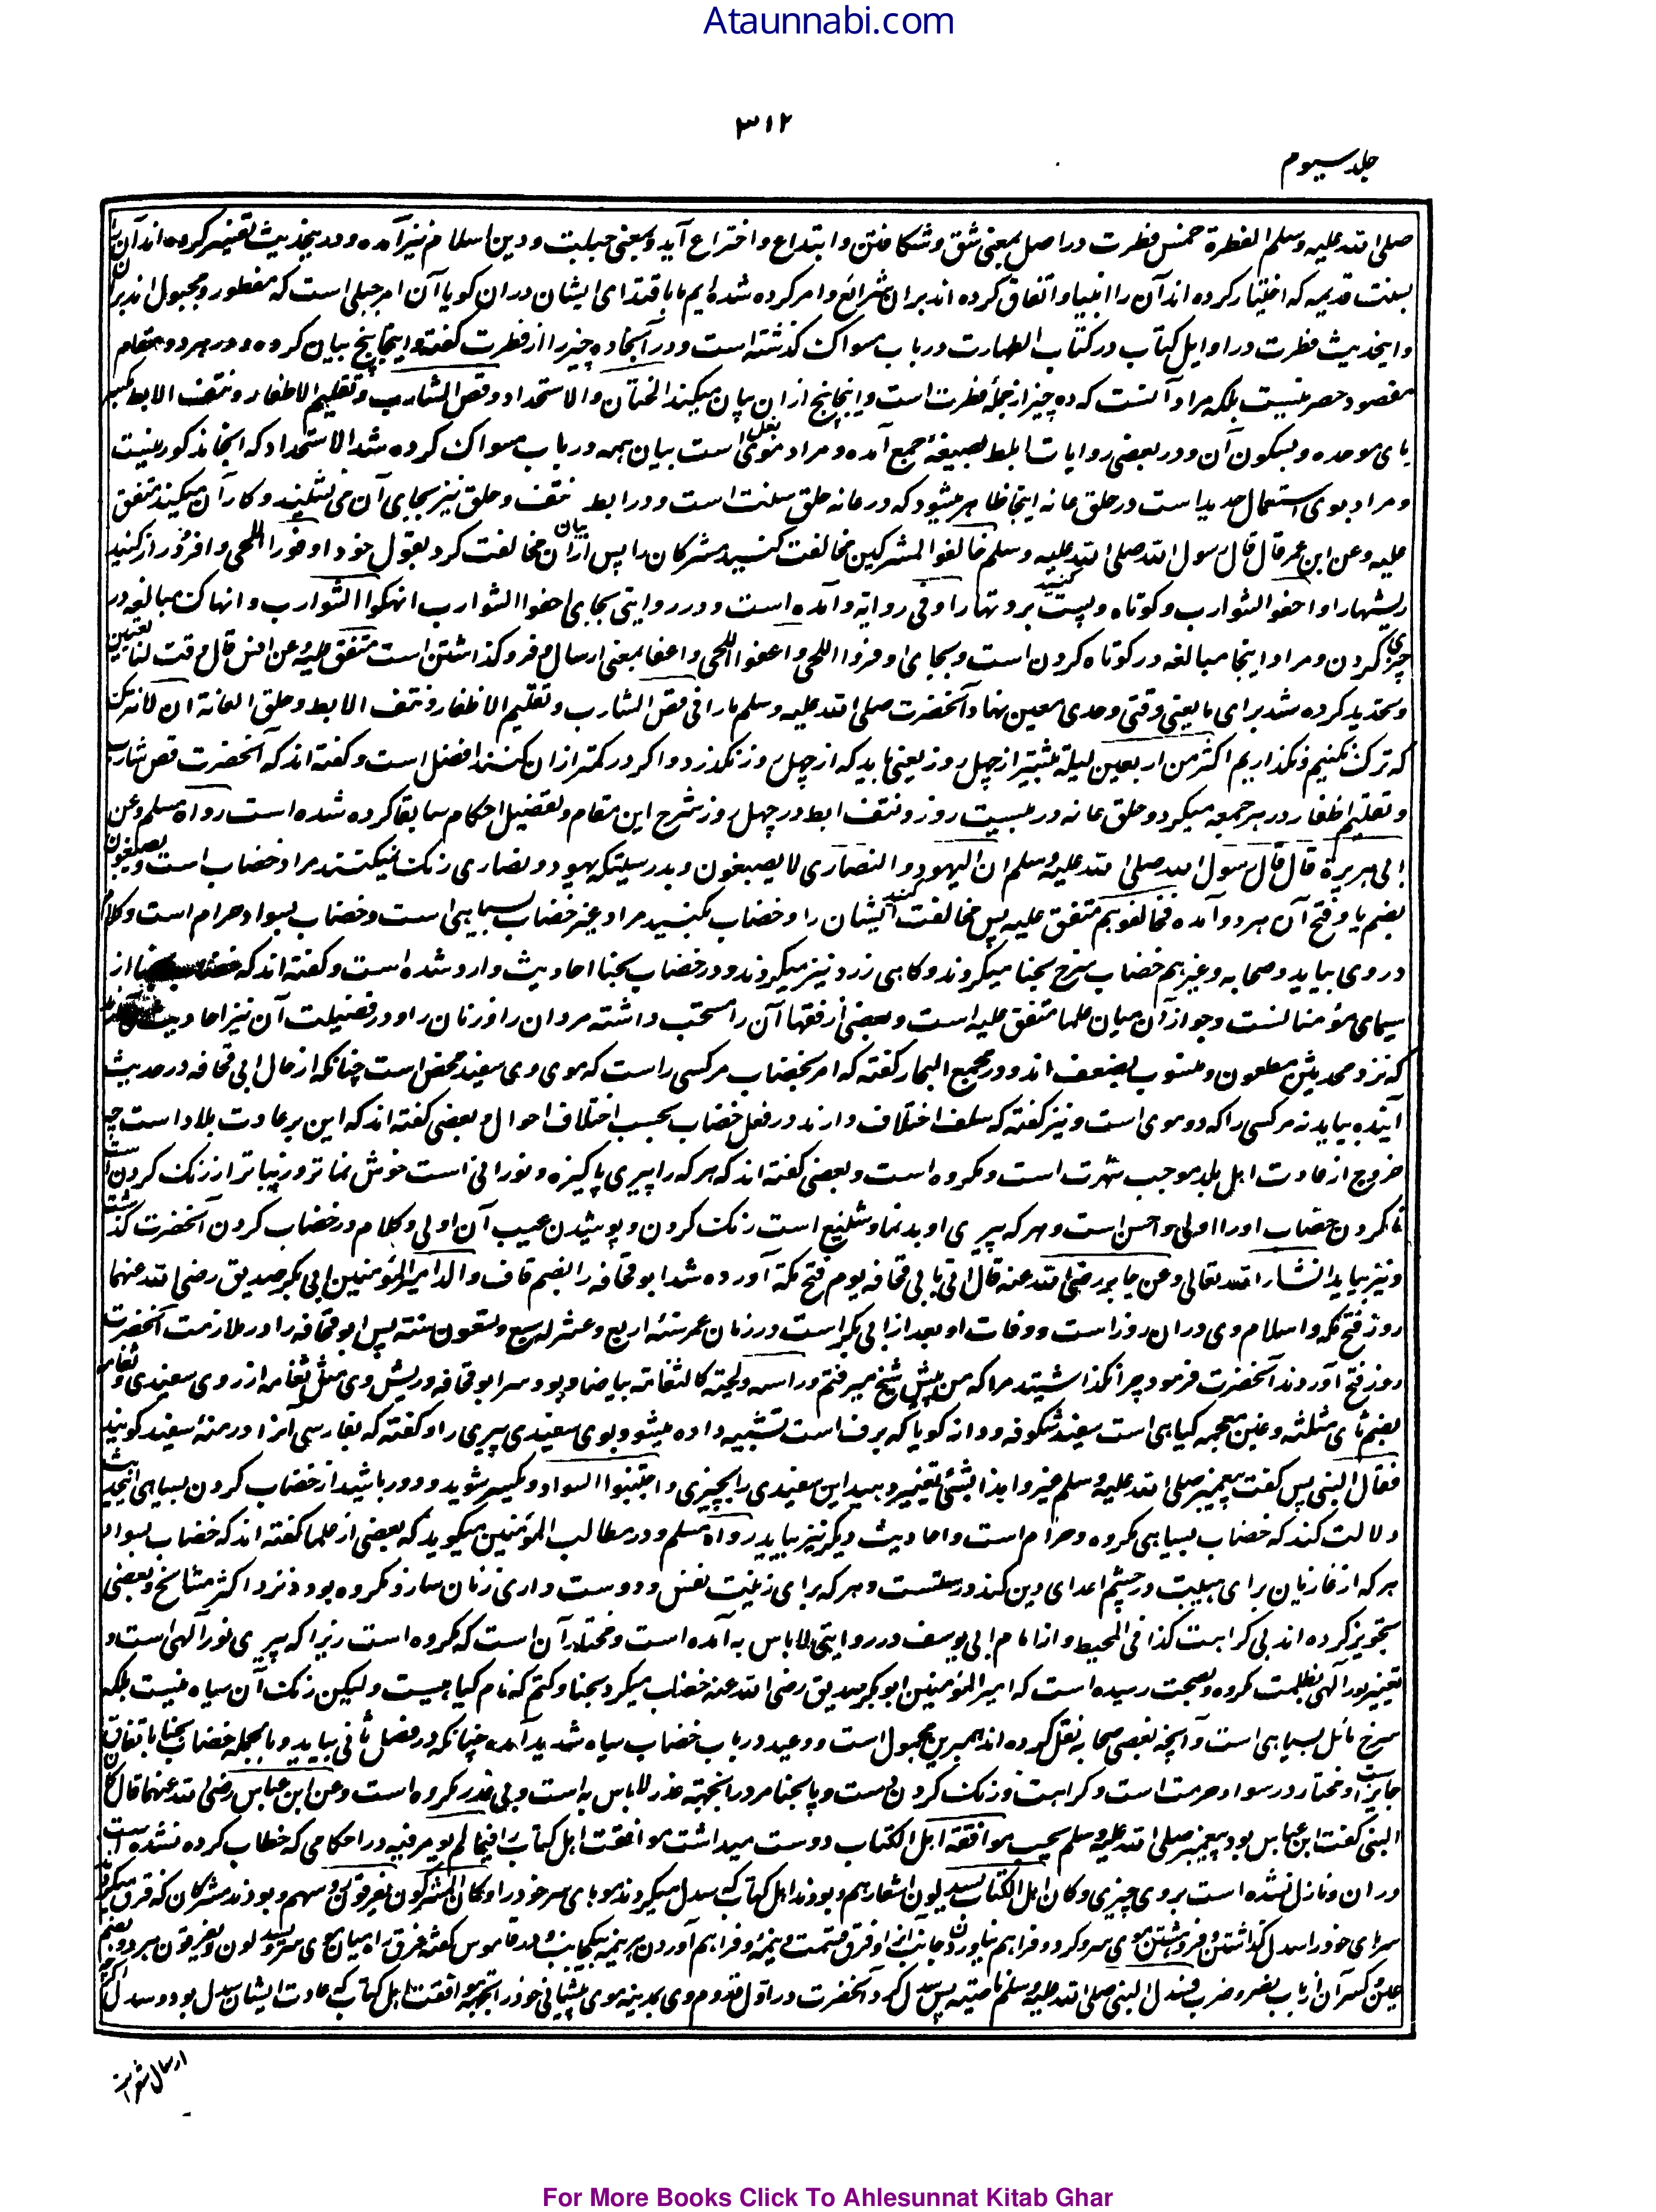 Ataunnabi.com
۳۱۲
جلد سیوم
صلی الله علیه وسلم الفطرة خمس فطرت در اصل بمعنی شق و شکافتن و ابتداع و اختراع آید و بمعنی جبلت و دین اسلام نیز آمده و در بنحدیث تفسیر کرده اند آن را
بسنت قدیمه که اختیار کرده اند آن را انبیا و اتفاق کرده اند بران شرائع و امر کرده شده ایم ما باقتدای ایشان دران کویا آن امر جبلی است که مفطور و مجبول اند بران
و اینحدیث فطرت در اوایل کتاب در کتاب الطهارت در باب مسواک گذشته است و در آنجا ده چیز را از فطرت گفته و اینجا پنج بیان کرده و در هر دو مقام
مقصود حصر نیست بلکه مراد آنست که ده چیز از جمله فطرت است و اینجا پنج ازان بیان میکند الختان والاستحداد وقص الشارب وتقلیم الاظفار ونتف الابط بکسر
بای موحده و بسکون آن و در بعضی روایات ابط بصیغهٔ جمع آمده و مراد موی بغل است بیان همه در باب مسواک کرده شد الاستحداد که آنجا مذکور نیست
و مراد بوی استعمال حدید است در حلق عانه اینجا ظاهر میشود که در عانه حلق سنت است و در ابط نتف و حلق نیز بجای آن می نشیند و کار آن میکند متفق
علیه وعن ابن عمر قال قال رسول الله صلی الله علیه وسلم خالفوا المشرکین مخالفت کنید مشرکان را پس ازان بیان مخالفت کرد بقول خود اوفروا اللحی وافر و دراز کنید
ریشها را واحفوا الشوارب و کوتاه و پست کنید بروتها را وفی روایة و آمده است و در روایتی بجای احفوا الشوارب انهکوا الشوارب و انهاک مبالغه در
چیزی کردن و مراد اینجا مبالغه در کوتاه کردن است و بجای اوفروا اللحی واعفوا اللحی و اعفا بمعنی ارسال و فرو گذاشتن است متفق علیه وعن انس قال وقت لنا تعیین
و تحدید کرده شد برای ما یعنی وقتی و حدی معین نهاد آنحضرت صلی الله علیه وسلم ما را فی قص الشارب وتقلیم الاظفار ونتف الابط وحلق العانة ان لا نترک
که ترک نکنیم و نگذاریم اکثر من اربعین لیلة بیشتر از چهل روز یعنی باید که از چهل روز نگذرد و اگر در کمتر ازان کنند افضل است و گفته اند که آنحضرت قص شارب
و تقلیم اظفار در هر جمعه میکرد و حلق عانه در بیست روز و نتف ابط در چهل روز شرح این مقام و تفصیل احکام سابقا کرده شده است رواه مسلم وعن
ابی هریرة قال قال رسول الله صلی الله علیه وسلم ان الیهود والنصاری لا یصبغون و بدرستیکه یهود و نصاری رنگ نمیکنند مراد خضاب است و یصبغون
بضم با و فتح آن هر دو آمده فخالفوهم متفق علیه پس مخالفت کنید ایشان را و خضاب بکنید مراد غیر خضاب بسیاهی است و خضاب بسواد حرام است و کلام
در وی بیاید و صحابه و غیرهم خضاب سرخ بحنا میکردند و گاهی زرد نیز میکردند و در خضاب بحنا احادیث وارد شده است و گفته اند که از
سیمای مؤمنانست و جواز آن میان علما متفق علیه است و بعضی از فقها آن را مستحب داشته مردان را و زنان را و در فضیلت آن نیز احادیث
که نزد محدثین مطعون و منسوب بضعف اند و در مجمع البحار گفته که امر بخضاب مر کسی راست که موی وی سفید محض است چنانکه از حال ابی قحافه در حدیث
آینده بیاید نه مر کسی را که دو موی است و نیز گفته که سلف اختلاف دارند در فعل خضاب بحسب اختلاف احوال و بعضی گفته اند که این بر عادت بلاد است چه
خروج از عادت اهل بلد موجب شهرت است و مکروه است و بعضی گفته اند که هر که را پیری پاکیزه و نورانی است خوش نماتر و زیباتر از رنگ کردن است
نا کردن خضاب او را اولی و احسن است و هر که پیری او بدنما و شنیع است رنگ کردن و پوشیدن عیب آن اولی و کلام در خضاب کردن آنحضرت گذشت
و نیز بیاید انشاء الله تعالی وعن جابر رضی الله عنه قال اتی بابی قحافة یوم فتح مکة آورده شد ابو قحافه را بضم قاف والد امیر المؤمنین ابی بکر صدیق رضی الله عنهما
روز فتح مکه و اسلام وی دران روز است و وفات او بعد از ابی بکر است در زمان عمر سنه اربع وعشر له سبع وتسعون سنة پس ابو قحافه را در ملازمت آنحضرت
روز فتح آوردند آنحضرت فرمود چرا نگذاشتید مرا که من پیش شیخ میرفتم وراسه ولحیته کالثغامة بیاضا و بود سر ابو قحافه و ریش وی مثل ثغامه از روی سفیدی و ثغامه
بضم ثای مثلثه و غین معجمه گیاهی است سفید شکوفه و دانه کویا که برف است تشبیه داده میشود بوی سفیدی پیری را و گفته که بفارسی آنرا درمنه سفید گویند
فقال النبی پس گفت پیغمبر صلی الله علیه وسلم غیروا هذا بشئ تغییر دهید این سفیدی را بچیزی واجتنبوا السواد و یکسو شوید و دور باشید از خضاب کردن بسیاهی اینحدیث
دلالت کند که خضاب بسیاهی مکروه و حرام است و احادیث دیگر نیز بیاید رواه مسلم و در مطالب المؤمنین میگوید که بعضی از علما گفته اند که خضاب بسواد
هر که از غازیان برای هیبت در چشم اعدای دین کند درستست و هر که برای زینت نفس و دوست داری زنان سازد مکروه بود نزد اکثر مشائخ و بعضی
تجویز کرده اند بی کراهت کذا فی المحیط و از امام ابی یوسف در روایتی لا باس به آمده است و مختار آن است که مکروه است زیرا که پیری نور الهی است و
تغییر نور الهی بظلمت مکروه و بصحت رسیده است که امیر المؤمنین ابوبکر صدیق رضی الله عنه خضاب میکرد بحنا و کتم که نام گیاهیست ولیکن رنگ آن سیاه نیست بلکه
سرخ مائل بسیاهی است و آنچه بعضی صحابه نقل کرده اند همبرین محمول است و وعید در باب خضاب سیاه شدید آمده چنانکه در فصل ثانی بیاید و بالجمله خضاب بحنا باتفاق
جایز است و مختار در سواد حرمت است و کراهت و رنگ کردن دست و پا بحنا مرد را بجهة عذر لا باس به است و بی عذر مکروه است وعن ابن عباس رضی الله عنهما قال کان
النبی گفت ابن عباس بود پیغمبر صلی الله علیه وسلم یحب موافقة اهل الکتاب دوست میداشت موافقت اهل کتاب را فیما لم یومر فیه در احکامی که خطاب کرده نشده است
دران و نازل نشده است بروی چیزی وکان اهل الکتاب یسدلون اشعارهم و بودند اهل کتاب که سدل میکردند موهای سر خود را وکان المشرکون یفرقون رؤسهم و بودند مشرکان که فرق میکردند
سرهای خود را سدل گذاشتن و فروهشتن موی سر و گرد و فراهم نیاوردن جانب آنرا و فرق قسمت و نیمه و فراهم آوردن هر نیمه بیکجانب و در قاموس گفته فرق راه میان موی سر و یسدلون و یفرقون هر دو بضم
عین و کسر آن از باب نصر و ضرب فسدل النبی صلی الله علیه وسلم ناصیته پس سدل کرد آنحضرت در اول قدوم وی بمدینه موی پیشانی خود را بجهة موافقت اهل کتاب که عادت ایشان سدل بود و سدل
ارسال شعر است
For More Books Click To Ahlesunnat Kitab Ghar